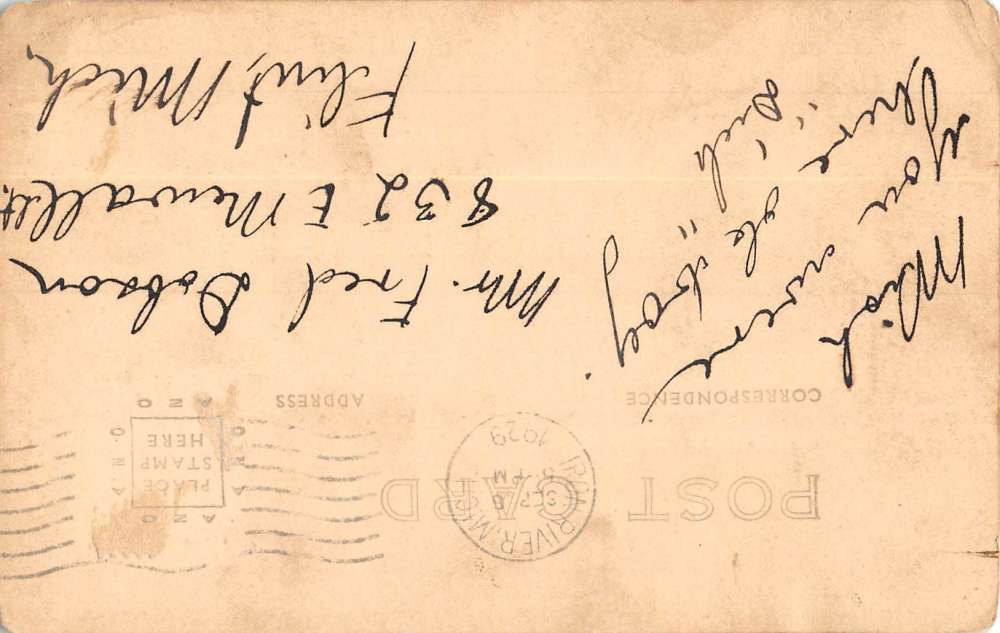 POST CARD
IRON RIVER, MICH.
SEP
PM
1929
PLACE
STAMP
HERE
AZO
AZO
AZO
AZO
CORRESPONDENCE
ADDRESS
Wish
you were
here ole boy
"Dick"
Mr. Fred Dobson
832 E
Flint, Mich.